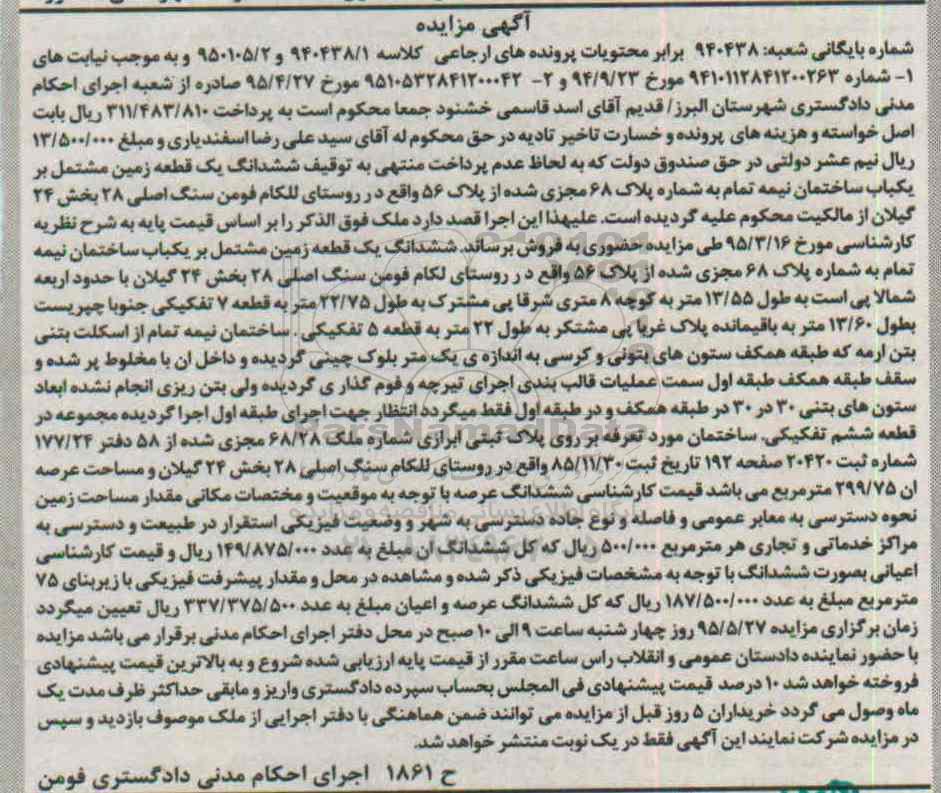 آگهی مزایده
شماره بایگانی شعبه: ۹۴۰۴۳۸ برابر محتویات پرونده های ارجاعی کلاسه ۹۴۰۴۳۸/۱ و ۹۵۰۱۰۵/۲ و به موجب نیابت های
۱- شماره ۹۴۱۰۱۱۲۸۴۱۲۰۰۲۶۳ مورخ ۹۴/۹/۲۳ و ۲- ۹۵۱۰۵۳۲۸۴۱۲۰۰۰۴۲ مورخ ۹۵/۴/۲۷ صادره از شعبه اجرای احکام
مدنی دادگستری شهرستان البرز/ قدیم آقای اسد قاسمی خشنود جمعا محکوم است به پرداخت ۳۱۱/۴۸۳/۸۱۰ ریال بابت
اصل خواسته و هزینه های پرونده و خسارت تاخیر تادیه در حق محکوم له آقای سید علی رضا اسفندیاری و مبلغ ۱۳/۵۰۰/۰۰۰
ریال نیم عشر دولتی در حق صندوق دولت که به لحاظ عدم پرداخت منتهی به توقیف ششدانگ یک قطعه زمین مشتمل بر
یکباب ساختمان نیمه تمام به شماره پلاک ۶۸ مجزی شده از پلاک ۵۶ واقع در روستای للکام فومن سنگ اصلی ۲۸ بخش ۲۴
گیلان از مالکیت محکوم علیه گردیده است. علیهذا این اجرا قصد دارد ملک فوق الذکر را بر اساس قیمت پایه به شرح نظریه
کارشناسی مورخ ۹۵/۳/۱۶ طی مزایده حضوری به فروش برساند. ششدانگ یک قطعه زمین مشتمل بر یکباب ساختمان نیمه
تمام به شماره پلاک ۶۸ مجزی شده از پلاک ۵۶ واقع در روستای لکام فومن سنگ اصلی ۲۸ بخش ۲۴ گیلان با حدود اربعه
شمالا پی است به طول ۱۳/۵۵ متر به کوچه ۸ متری شرقا پی مشترک به طول ۲۲/۷۵ متر به قطعه ۷ تفکیکی جنوبا چپریست
بطول ۱۳/۶۰ متر به باقیمانده پلاک غربا پی مشتکر به طول ۲۲ متر به قطعه ۵ تفکیکی . ساختمان نیمه تمام از اسکلت بتنی
بتن ارمه که طبقه همکف ستون های بتونی و کرسی به اندازه ی یک متر بلوک چینی گردیده و داخل ان با مخلوط پر شده و
سقف طبقه همکف طبقه اول سمت عملیات قالب بندی اجرای تیرچه و فوم گذار ی گردیده ولی بتن ریزی انجام نشده ابعاد
ستون های بتنی ۳۰ در ۳۰ در طبقه همکف و در طبقه اول فقط میگردد انتظار جهت اجرای طبقه اول اجرا گردیده مجموعه در
قطعه ششم تفکیکی. ساختمان مورد تعرفه بر روی پلاک ثبتی ابرازی شماره ملک ۶۸/۲۸ مجزی شده از ۵۸ دفتر ۱۷۷/۲۴
شماره ثبت ۲۰۴۲۰ صفحه ۱۹۲ تاریخ ثبت ۸۵/۱۱/۳۰ واقع در روستای للکام سنگ اصلی ۲۸ بخش ۲۴ گیلان و مساحت عرصه
ان ۲۹۹/۷۵ مترمربع می باشد قیمت کارشناسی ششدانگ عرصه با توجه به موقعیت و مختصات مکانی مقدار مساحت زمین
نحوه دسترسی به معابر عمومی و فاصله و نوع جاده دسترسی به شهر و وضعیت فیزیکی استقرار در طبیعت و دسترسی به
مراکز خدماتی و تجاری هر مترمربع ۵۰۰/۰۰۰ ریال که کل ششدانگ ان مبلغ به عدد ۱۴۹/۸۷۵/۰۰۰ ریال و قیمت کارشناسی
اعیانی بصورت ششدانگ با توجه به مشخصات فیزیکی ذکر شده و مشاهده در محل و مقدار پیشرفت فیزیکی با زیربنای ۷۵
مترمربع مبلغ به عدد ۱۸۷/۵۰۰/۰۰۰ ریال که کل ششدانگ عرصه و اعیان مبلغ به عدد ۳۳۷/۳۷۵/۵۰۰ ریال تعیین میگردد
زمان برگزاری مزایده ۹۵/۵/۲۷ روز چهار شنبه ساعت ۹ الی ۱۰ صبح در محل دفتر اجرای احکام مدنی برقرار می باشد مزایده
با حضور نماینده دادستان عمومی و انقلاب راس ساعت مقرر از قیمت پایه ارزیابی شده شروع و به بالاترین قیمت پیشنهادی
فروخته خواهد شد ۱۰ درصد قیمت پیشنهادی فی المجلس بحساب سپرده دادگستری واریز و مابقی حداکثر ظرف مدت یک
ماه وصول می گردد خریداران ۵ روز قبل از مزایده می توانند ضمن هماهنگی با دفتر اجرایی از ملک موصوف بازدید و سپس
در مزایده شرکت نمایند این آگهی فقط در یک نوبت منتشر خواهد شد.
ح ۱۸۶۱ اجرای احکام مدنی دادگستری فومن
ParsNamadData